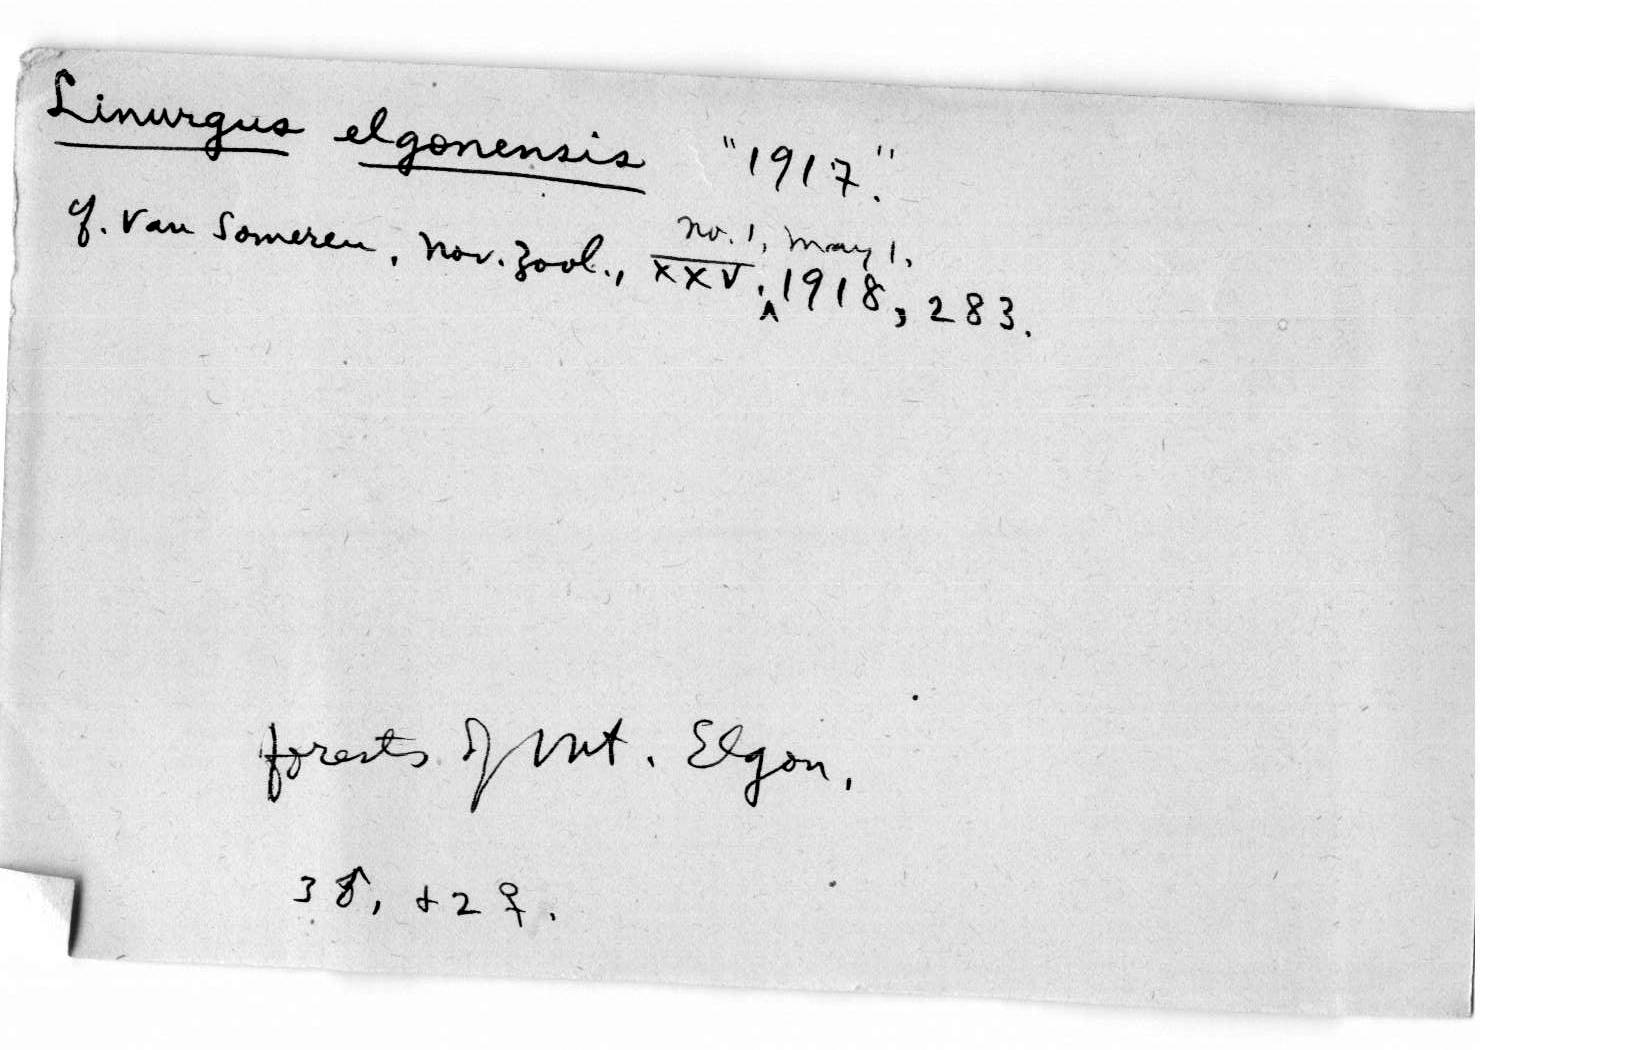 Linurgus elgonensis "1917."
cf. Van Someren, Nov. Zool., XXV, no. 1, May 1, 1918, 283.
forests of Mt. Elgon.
3 ♂, + 2 ♀.